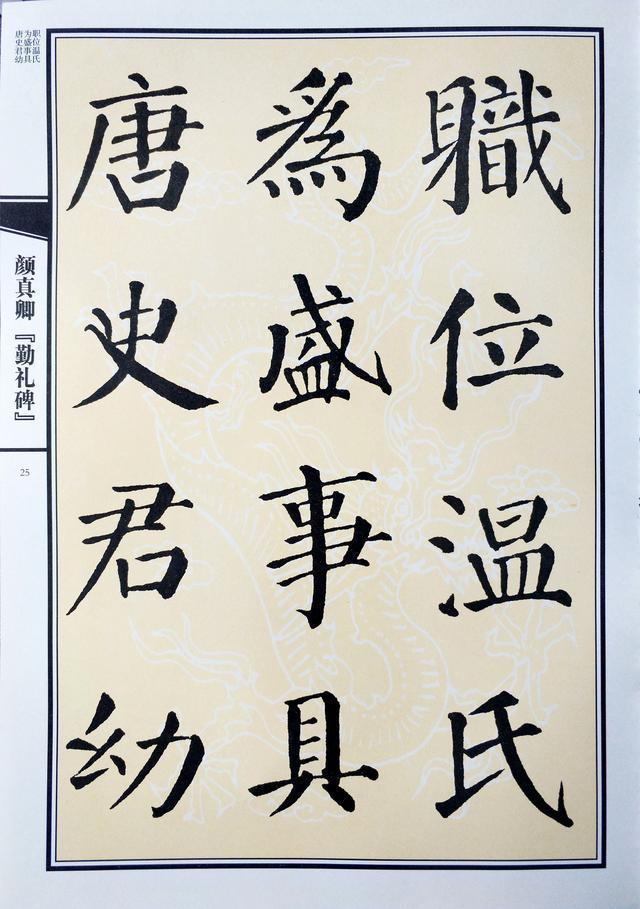 職位温氏
為盛事具
唐史君幼
职位温氏
为盛事具
唐史君幼
颜真卿『勤礼碑』
25